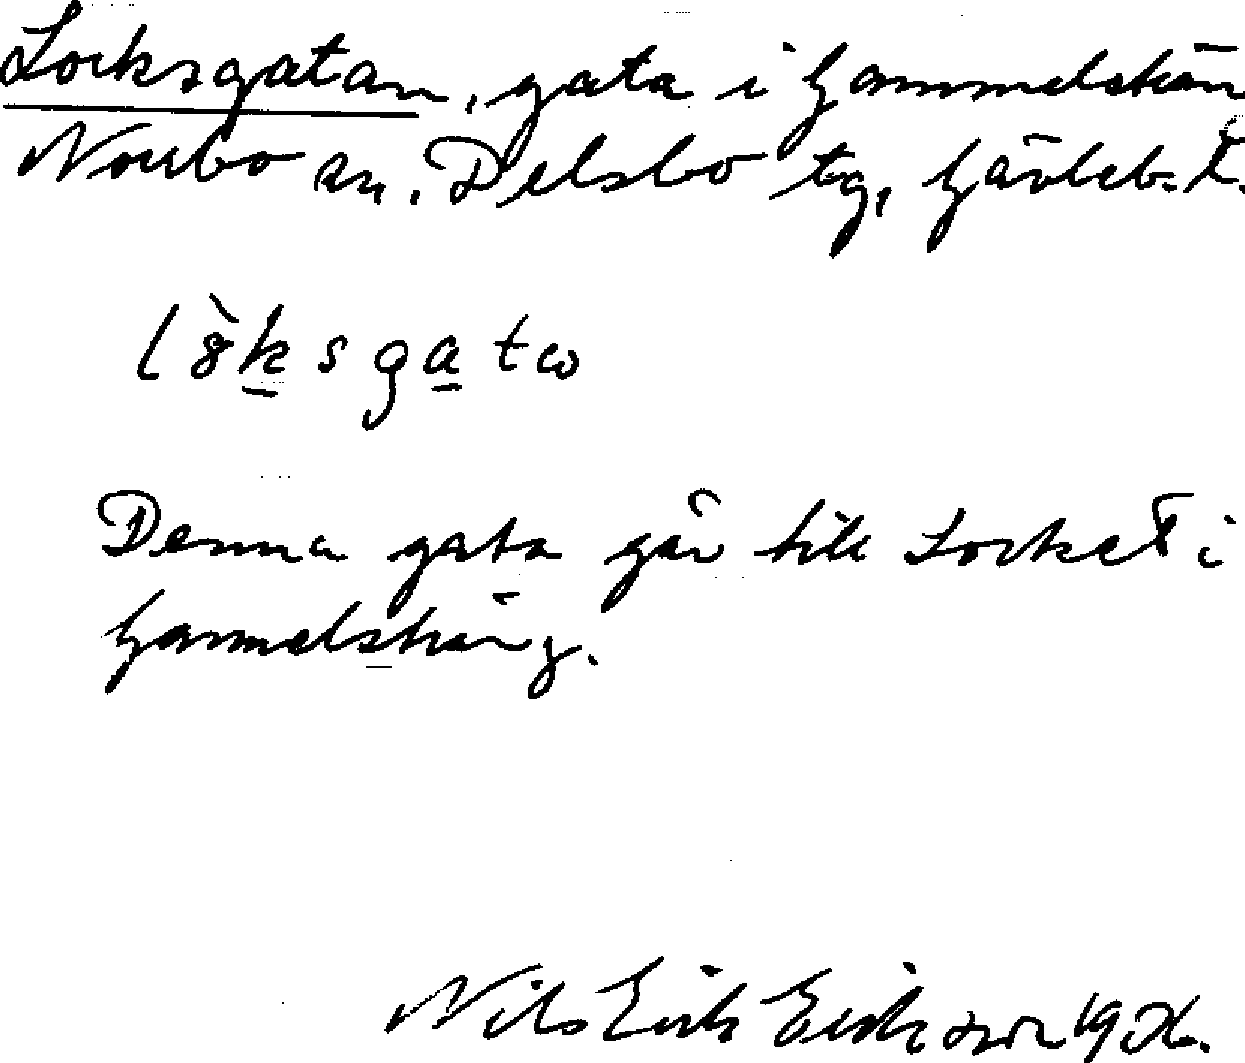 Locksgatan, gata i Gammelskär
Norrbo sn. Delsbo tg, Gävleb. l.
l ò̤ k s g a t ω
Denna gata går till Locket i
Gammelskäng.
Nils Erik Eriksson 19